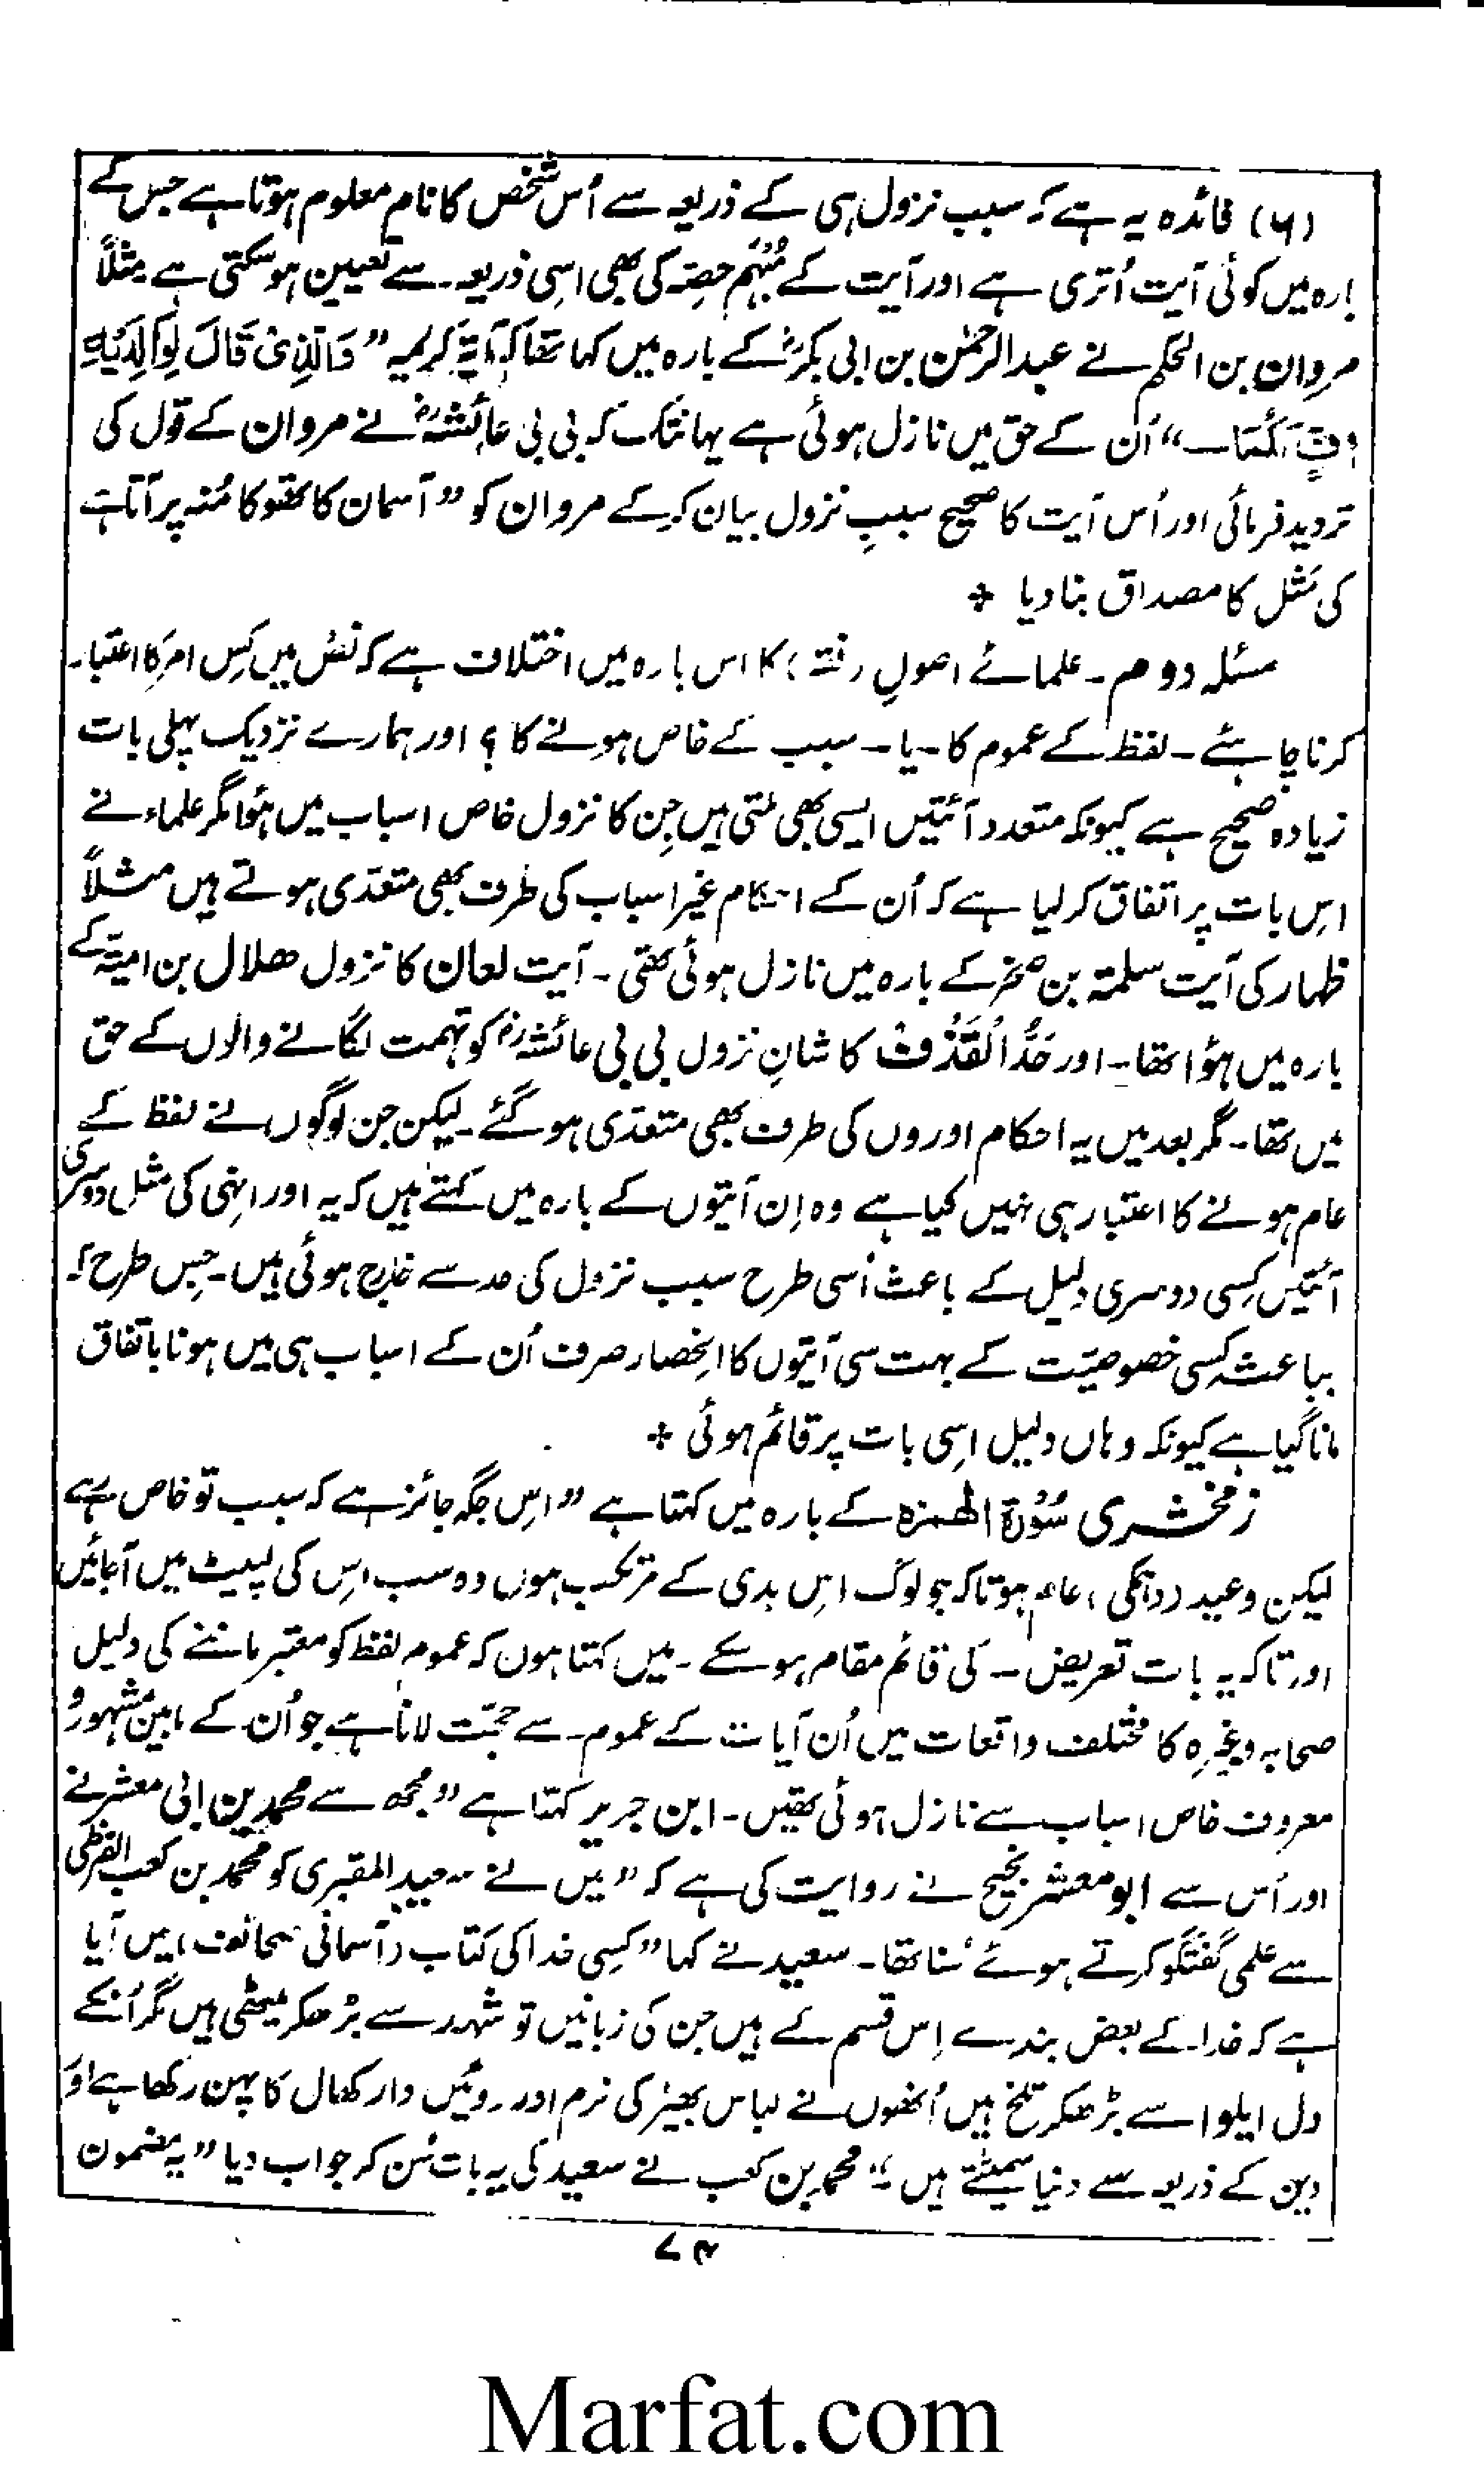 (۶) فائدہ یہ ہے کہ سبب نزول ہی کے ذریعہ سے اُس شخص کا نام معلوم ہوتا ہے جس کے
بارہ میں کوئی آیت اُتری ہے اور آیت کے مُبہَم حصّہ کی بھی اسی ذریعہ سے تعیین ہو سکتی ہے مثلاً
مروان بن الحکم نے عبدالرحمٰن بن ابی بکرؓ کے بارہ میں کہا تھا کہ آیۃ کریمہ ”وَالَّذِیْ قَالَ لِوَالِدَیْہِ
اُفٍّ لَّکُمَا“ اُن کے حق میں نازل ہوئی ہے یہانتک کہ بی بی عائشہؓ نے مروان کے قول کی
تردید فرمائی اور اُس آیت کا صحیح سببِ نزول بیان کر کے مروان کو ”آسمان کا تھوکا مُنہ پر آتا ہے
کی مَثل کا مصداق بنا دیا ÷
مسئلہ دوم۔ علمائے اصولِ (فقہ) کا اس بارہ میں اختلاف ہے کہ نصّ میں کِس امر کا اعتبار
کرنا چاہئے۔ لفظ کے عموم کا۔ یا۔ سبب کے خاص ہونے کا؟ اور ہمارے نزدیک پہلی بات
زیادہ صحیح ہے کیونکہ متعدد آئتیں ایسی بھی ملتی ہیں جن کا نزول خاص اسباب میں ہُوا مگر علماء نے
اِس بات پر اتفاق کر لیا ہے کہ اُن کے احکام غیر اسباب کی طرف بھی متعدّی ہوتے ہیں مثلاً
ظہار کی آیت سلمۃ بن صخر کے بارہ میں نازل ہوئی تھی۔ آیت لعان کا نزول ھلال بن امیّۃ کے
بارہ میں ہُوا تھا۔ اور حَدُّ الْقَذْفِ کا شانِ نزول بی بی عائشہؓ کو تہمت لگانے والوں کے حق
میں تھا۔ مگر بعد میں یہ احکام اوروں کی طرف بھی متعدّی ہو گئے۔ لیکن جن لوگوں نے لفظ کے
عام ہونے کا اعتبار ہی نہیں کیا ہے وہ اِن آیتوں کے بارہ میں کہتے ہیں کہ یہ اور انہی کی مثل دوسری
آئتیں کِسی دوسری دلیل کے باعث اُسی طرح سبب نزول کی حد سے خارج ہوئی ہیں۔ جس طرح کہ
بباعث کسی خصوصیّت کے بہت سی آیتوں کا انحصار صرف اُن کے اسباب ہی میں ہونا باتفاق
مانا گیا ہے کیونکہ وہاں دلیل اسی بات پر قائم ہوئی ÷
زمخشری سُوْرۃ الھمزہ کے بارہ میں کہتا ہے ”اِس جگہ جائز ہے کہ سبب تو خاص رہے
لیکن وعید (دہمکی) عام ہو تاکہ جو لوگ اِس بدی کے مرتکب ہوں وہ سب اِس کی لپیٹ میں آجائیں
اور تاکہ یہ بات تعریض۔ کی قائم مقام ہو سکے۔ میں کہتا ہوں کہ عموم لفظ کو معتبر ماننے کی دلیل
صحابہ وغیرہ کا مختلف واقعات میں اُن آیات کے عموم۔ سے حجّت لانا ہے جو اُن کے مابین مشہور و
معروف خاص اسباب سے نازل ہوئی تھیں۔ ابن جریر کہتا ہے ”مجھ سے محمد بن ابی معشر نے
اور اُس سے ابو معشر نجیح نے روایت کی ہے کہ ”میں نے سعید المقبری کو محمد بن کعب القرظی
سے علمی گفتگو کرتے ہوئے سُنا تھا۔ سعید نے کہا ”کسی خدا کی کتاب (آسمانی صحائف) میں آیا
ہے کہ خدا کے بعض بندے اِس قسم کے ہیں جن کی زبانیں تو شہد سے بڑھکر میٹھی ہیں مگر اُنکے
دل ایلوا سے بڑھکر تلخ ہیں اُنھوں نے لباس بھیڑ کی نرم اور روئیں دار کھال کا پہن رکھا ہے اور
دین کے ذریعہ سے دنیا سمیٹتے ہیں“ محمد بن کعب نے سعید کی یہ بات سُن کر جواب دیا ”یہ مضمون
۷۴
Marfat.com